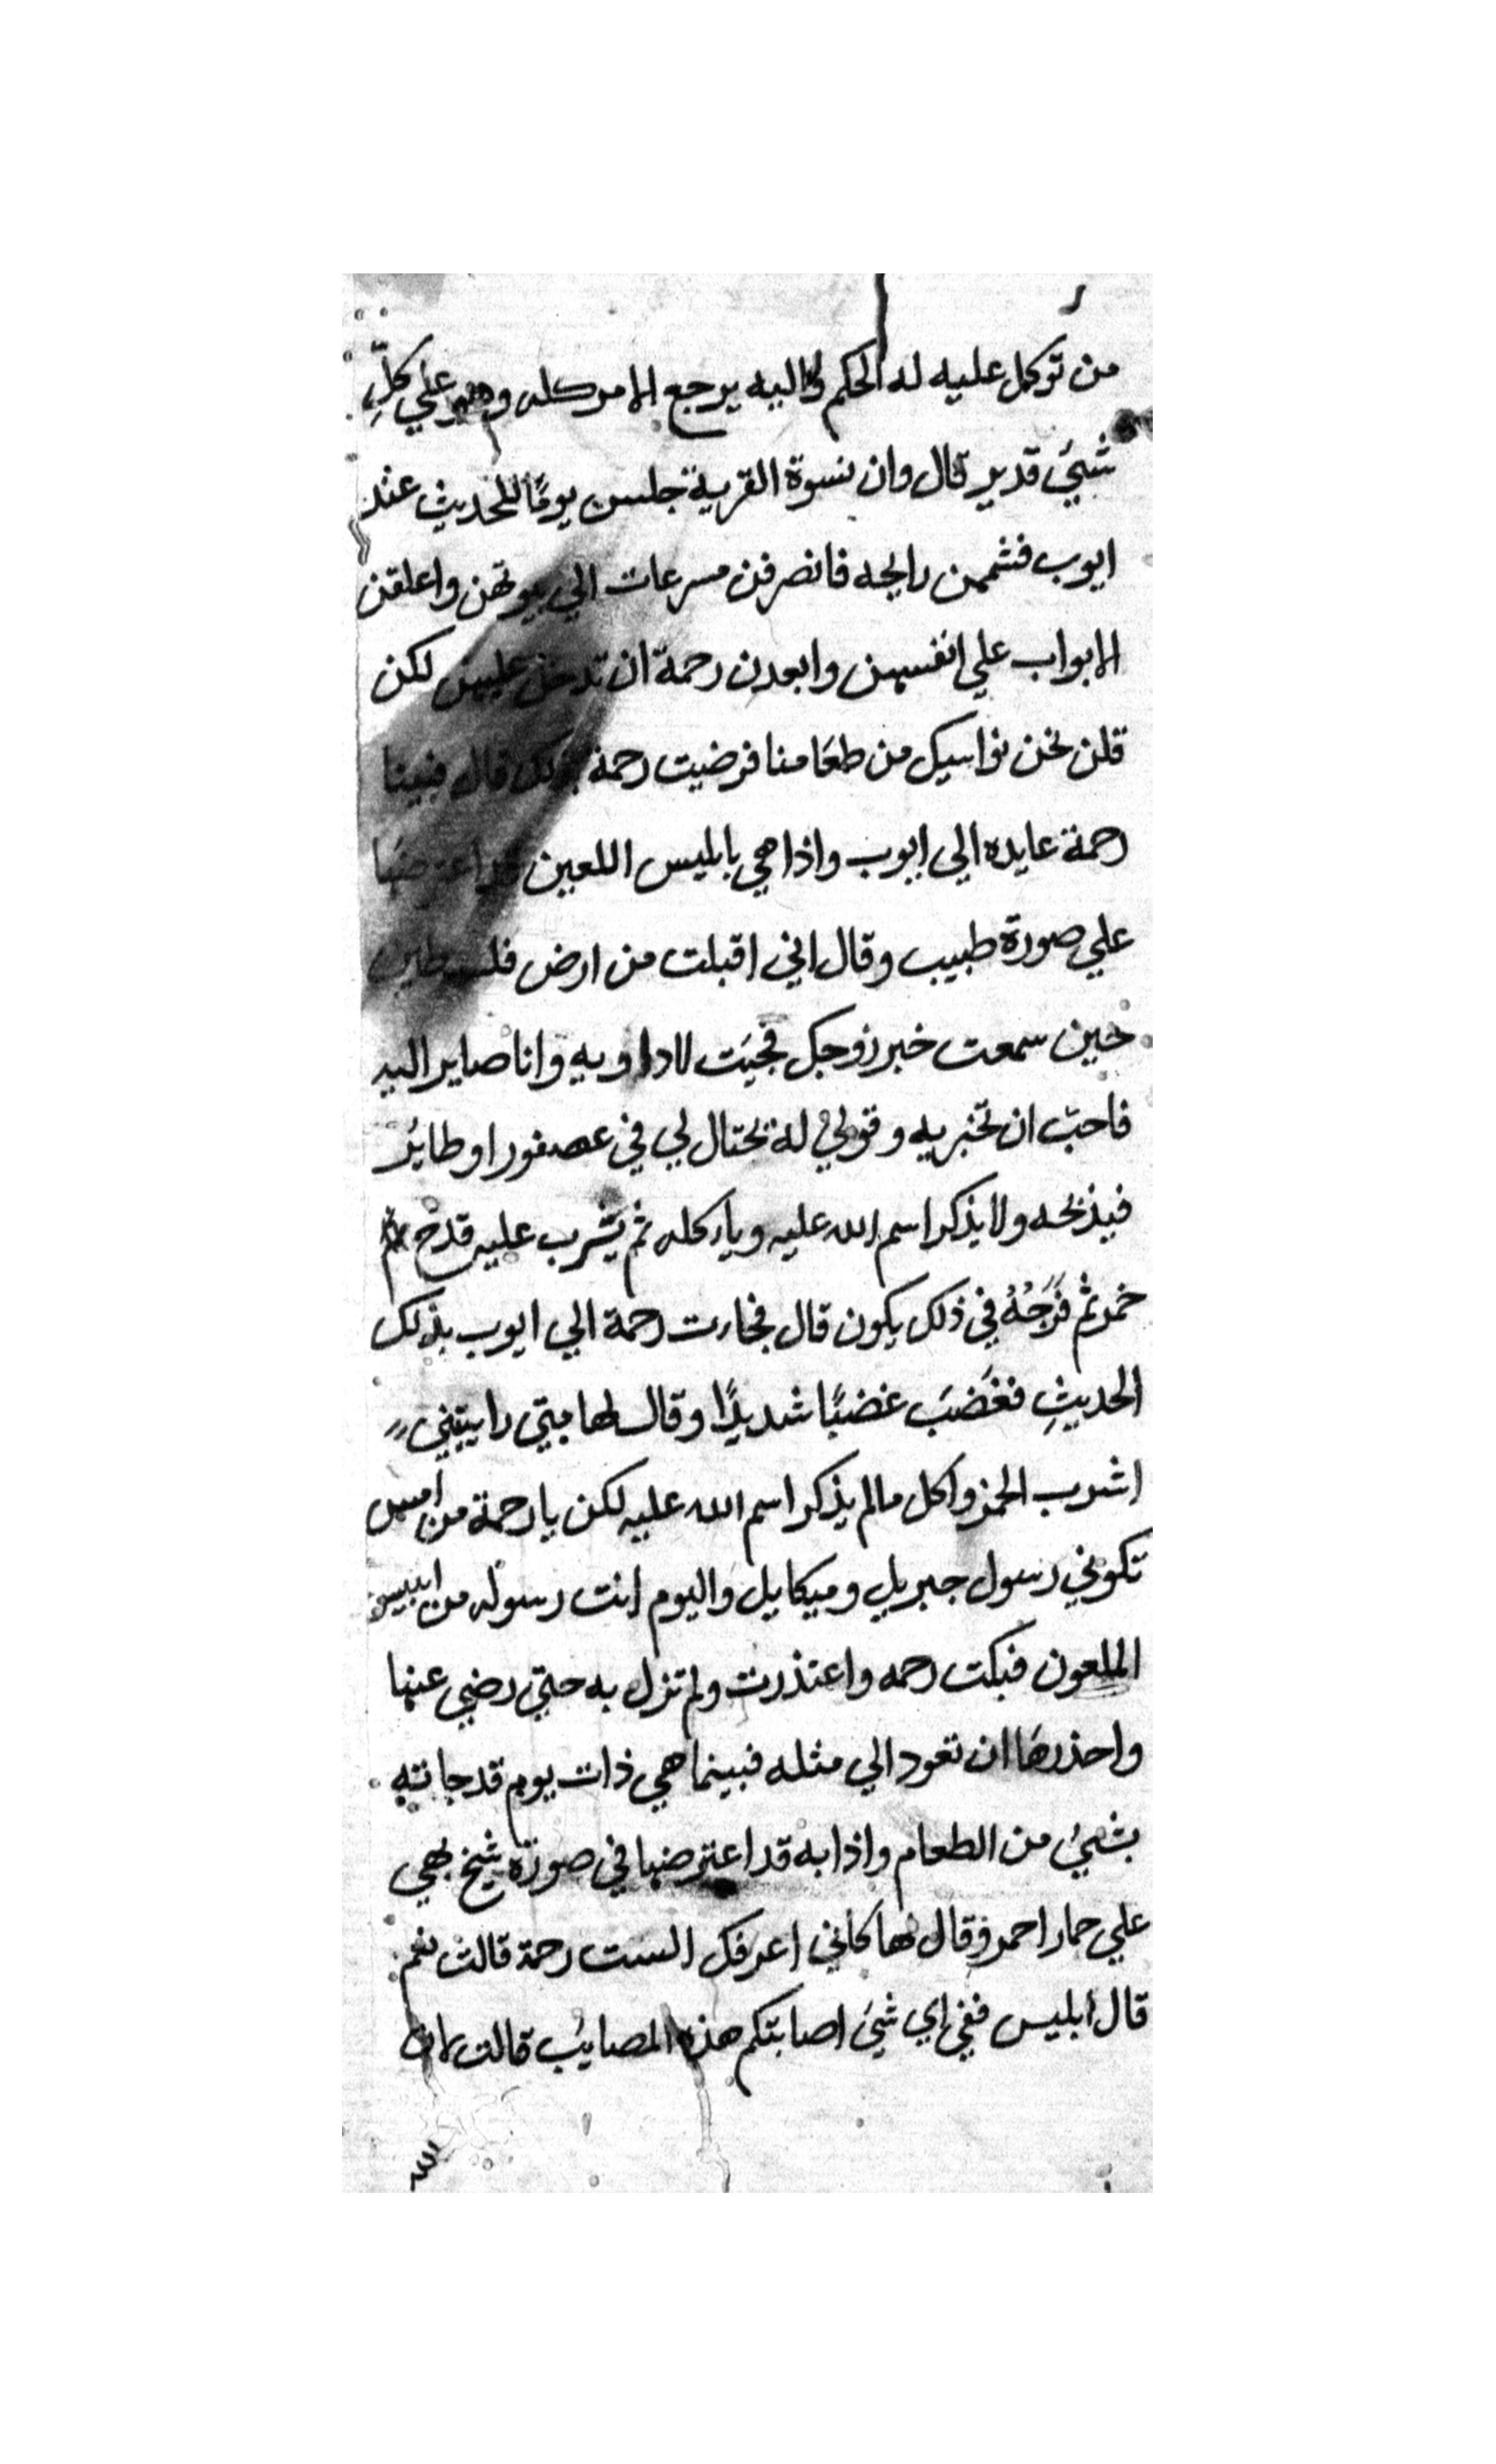 من توكل عليه له الحكم واليه يرجع الامر كله وهو علي كلِّ
شيئ قدير قال وان نسوة القرية جلسن يومًا للحديث عند
ايوب فشممن رايحه فانصرفن مسرعات الي بيوتهن واعلقن
الابواب علي انفسهن وابعدن رحمة ان تدخل عليهن لكن
قلن نحن نواسيك من طعامنا فرضيت رحمة بذلك قال فبينا
رحمة عايده الي ايوب واذا هي بابليس اللعين قد اعترضها
علي صورة طبيب وقال اني اقبلت من ارض فلسطين
حين سمعت خبر زوجك فجيت لاداويه وانا صاير اليه
فاحب ان تخبريه وقولي له يحتال لي في عصفور او طاير
فيذبحه ولا يذكر اسم الله عليه وياكله ثم يشرب عليه قدح
خمر ثم فَرَجُهُ في ذلك يكون قال فجاءت رحمة الي ايوب بذلك
الحديثِ فغَضَبَ غضبًا شديدًا وقال لها متي رايتيني
اشرب الخمر واكل مالم يذكر اسم الله عليه لكن يا رحمة من امس
تكوني رسول جبريل وميكايل واليوم انت رسوله من ابليس
الملعون فبكت رحمه واعتذرت ولم تزل به حتي رضي عنها
واحذرها ان تعود الي مثله فبينما هي ذات يوم قد جاته
بشيئ من الطعام واذا به قد اعترضها في صورة شيخ بهي
علي حمار احمر فقال لها كاني اعرفك الست رحمة قالت نعم
قال ابليس ففي اي شئ اصابتكم هذه المصايب قالت ان
الله